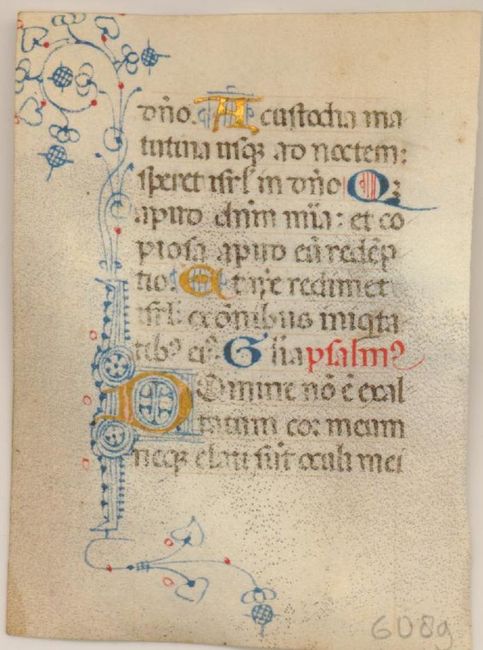 dño. A custodia ma
tutina usqȝ ad noctem:
speret isrl in dño Qȝ
apud dñm mïa: et co
piosa apud eũ redẽp
tio. Et ip̃e redimet
isrl: ex õnibus iniqta
tibꝰ eiꝰ. Glia psalmꝰ
Domine nõ ẽ exal
tatum cor meum
neqȝ elati sũt oculi mei
6089